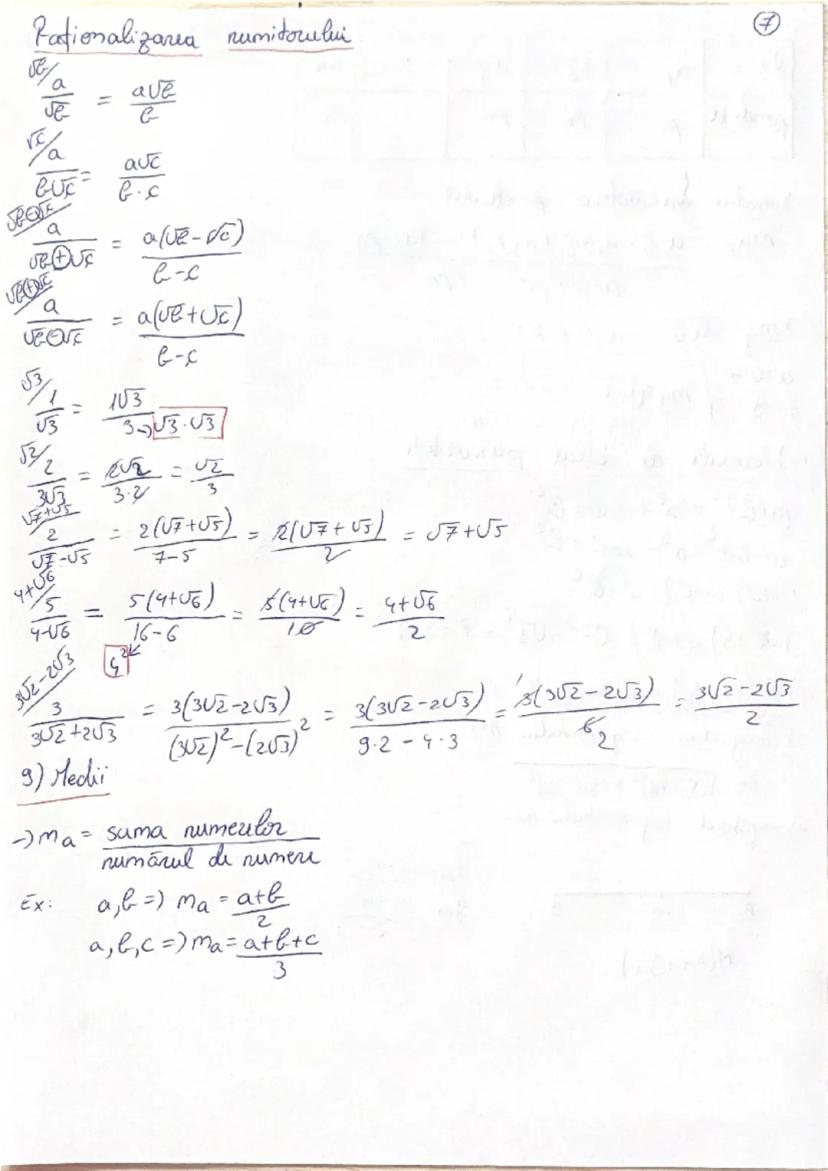 7
Raționalizarea numitorului
√b/ a/√b = a√b/b
√c/ a/b√c = a√c/b·c
√b-√c/ a/√b+√c = a(√b-√c)/b-c
√b+√c/ a/√b-√c = a(√b+√c)/b-c
√3/ 1/√3 = 1√3/3 → √3·√3
√2/ 2/3√3 = 2√2/3·2 = √2/3
√7+√5/ 2/√7-√5 = 2(√7+√5)/7-5 = 2(√7+√5)/2 = √7+√5
4+√6/ 5/4-√6 = 5(4+√6)/16-6 = 5(4+√6)/10 = 4+√6/2
4²
3√2-2√3/ 3/3√2+2√3 = 3(3√2-2√3)/(3√2)²-(2√3)² = 3(3√2-2√3)/9·2-4·3 = 3(3√2-2√3)/6 2 = 3√2-2√3/2
9) Medii
→ ma = suma numerelor/numărul de numere
Ex: a,b => ma = a+b/2
a,b,c => ma = a+b+c/3